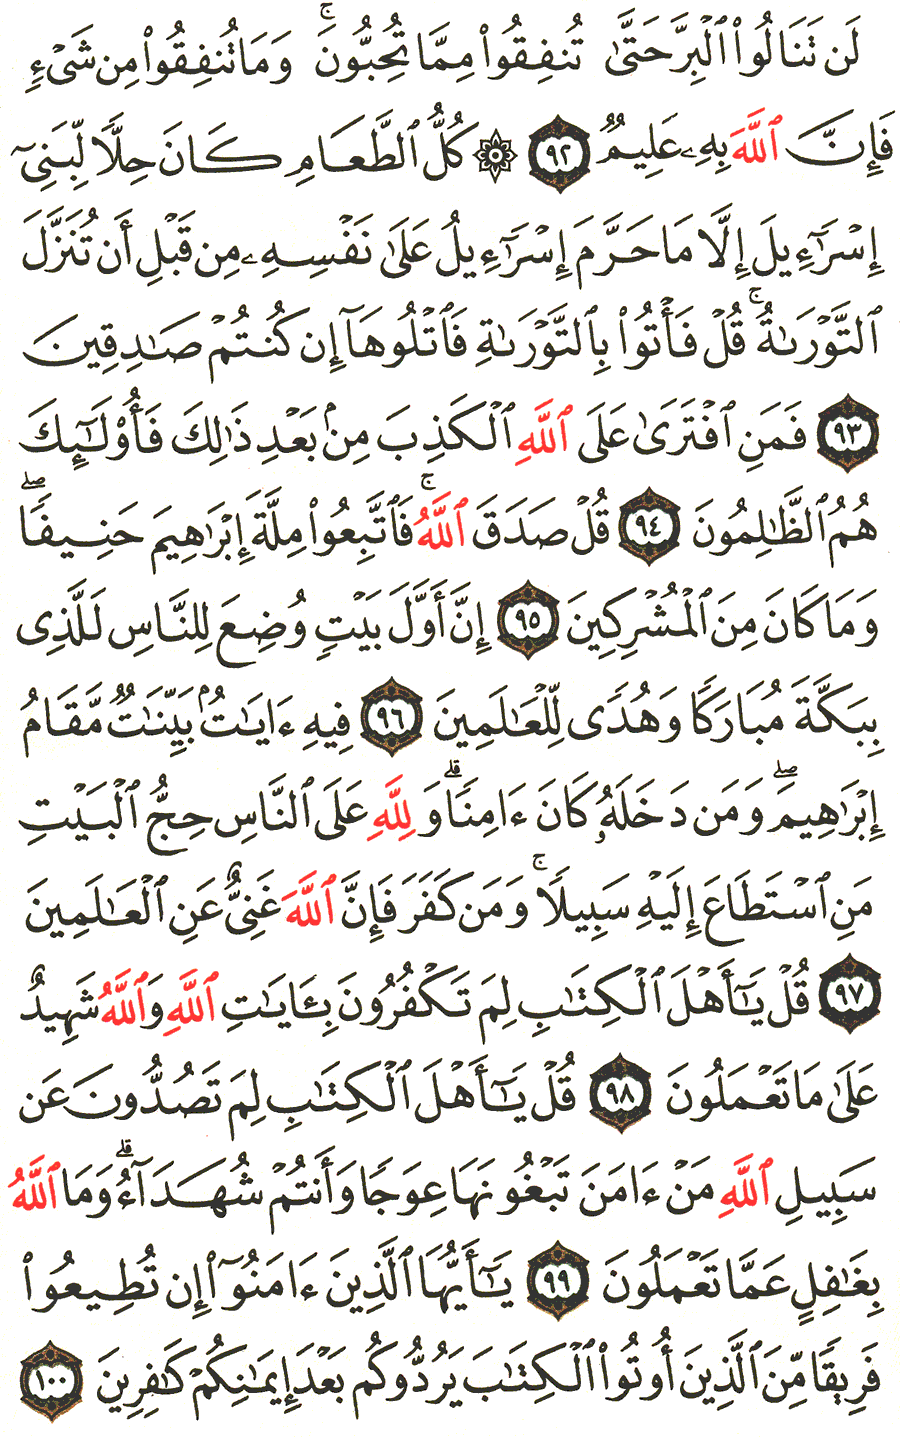 لَن تَنَالُوا۟ ٱلْبِرَّ حَتَّىٰ تُنفِقُوا۟ مِمَّا تُحِبُّونَ ۚ وَمَا تُنفِقُوا۟ مِن شَىْءٍ
فَإِنَّ ٱللَّهَ بِهِۦ عَلِيمٌ ٩٢ ۞ كُلُّ ٱلطَّعَامِ كَانَ حِلًّا لِّبَنِىٓ
إِسْرَٰٓءِيلَ إِلَّا مَا حَرَّمَ إِسْرَٰٓءِيلُ عَلَىٰ نَفْسِهِۦ مِن قَبْلِ أَن تُنَزَّلَ
ٱلتَّوْرَىٰةُ ۚ قُلْ فَأْتُوا۟ بِٱلتَّوْرَىٰةِ فَٱتْلُوهَآ إِن كُنتُمْ صَٰدِقِينَ
٩٣ فَمَنِ ٱفْتَرَىٰ عَلَى ٱللَّهِ ٱلْكَذِبَ مِنۢ بَعْدِ ذَٰلِكَ فَأُو۟لَٰٓئِكَ
هُمُ ٱلظَّٰلِمُونَ ٩٤ قُلْ صَدَقَ ٱللَّهُ ۚ فَٱتَّبِعُوا۟ مِلَّةَ إِبْرَٰهِيمَ حَنِيفًا ۖ
وَمَا كَانَ مِنَ ٱلْمُشْرِكِينَ ٩٥ إِنَّ أَوَّلَ بَيْتٍ وُضِعَ لِلنَّاسِ لَلَّذِى
بِبَكَّةَ مُبَارَكًا وَهُدًى لِّلْعَٰلَمِينَ ٩٦ فِيهِ ءَايَٰتٌۢ بَيِّنَٰتٌ مَّقَامُ
إِبْرَٰهِيمَ ۖ وَمَن دَخَلَهُۥ كَانَ ءَامِنًا ۗ وَلِلَّهِ عَلَى ٱلنَّاسِ حِجُّ ٱلْبَيْتِ
مَنِ ٱسْتَطَاعَ إِلَيْهِ سَبِيلًا ۚ وَمَن كَفَرَ فَإِنَّ ٱللَّهَ غَنِىٌّ عَنِ ٱلْعَٰلَمِينَ
٩٧ قُلْ يَٰٓأَهْلَ ٱلْكِتَٰبِ لِمَ تَكْفُرُونَ بِـَٔايَٰتِ ٱللَّهِ وَٱللَّهُ شَهِيدٌ
عَلَىٰ مَا تَعْمَلُونَ ٩٨ قُلْ يَٰٓأَهْلَ ٱلْكِتَٰبِ لِمَ تَصُدُّونَ عَن
سَبِيلِ ٱللَّهِ مَنْ ءَامَنَ تَبْغُونَهَا عِوَجًا وَأَنتُمْ شُهَدَآءُ ۗ وَمَا ٱللَّهُ
بِغَٰفِلٍ عَمَّا تَعْمَلُونَ ٩٩ يَٰٓأَيُّهَا ٱلَّذِينَ ءَامَنُوٓا۟ إِن تُطِيعُوا۟
فَرِيقًا مِّنَ ٱلَّذِينَ أُوتُوا۟ ٱلْكِتَٰبَ يَرُدُّوكُم بَعْدَ إِيمَٰنِكُمْ كَٰفِرِينَ ١٠٠